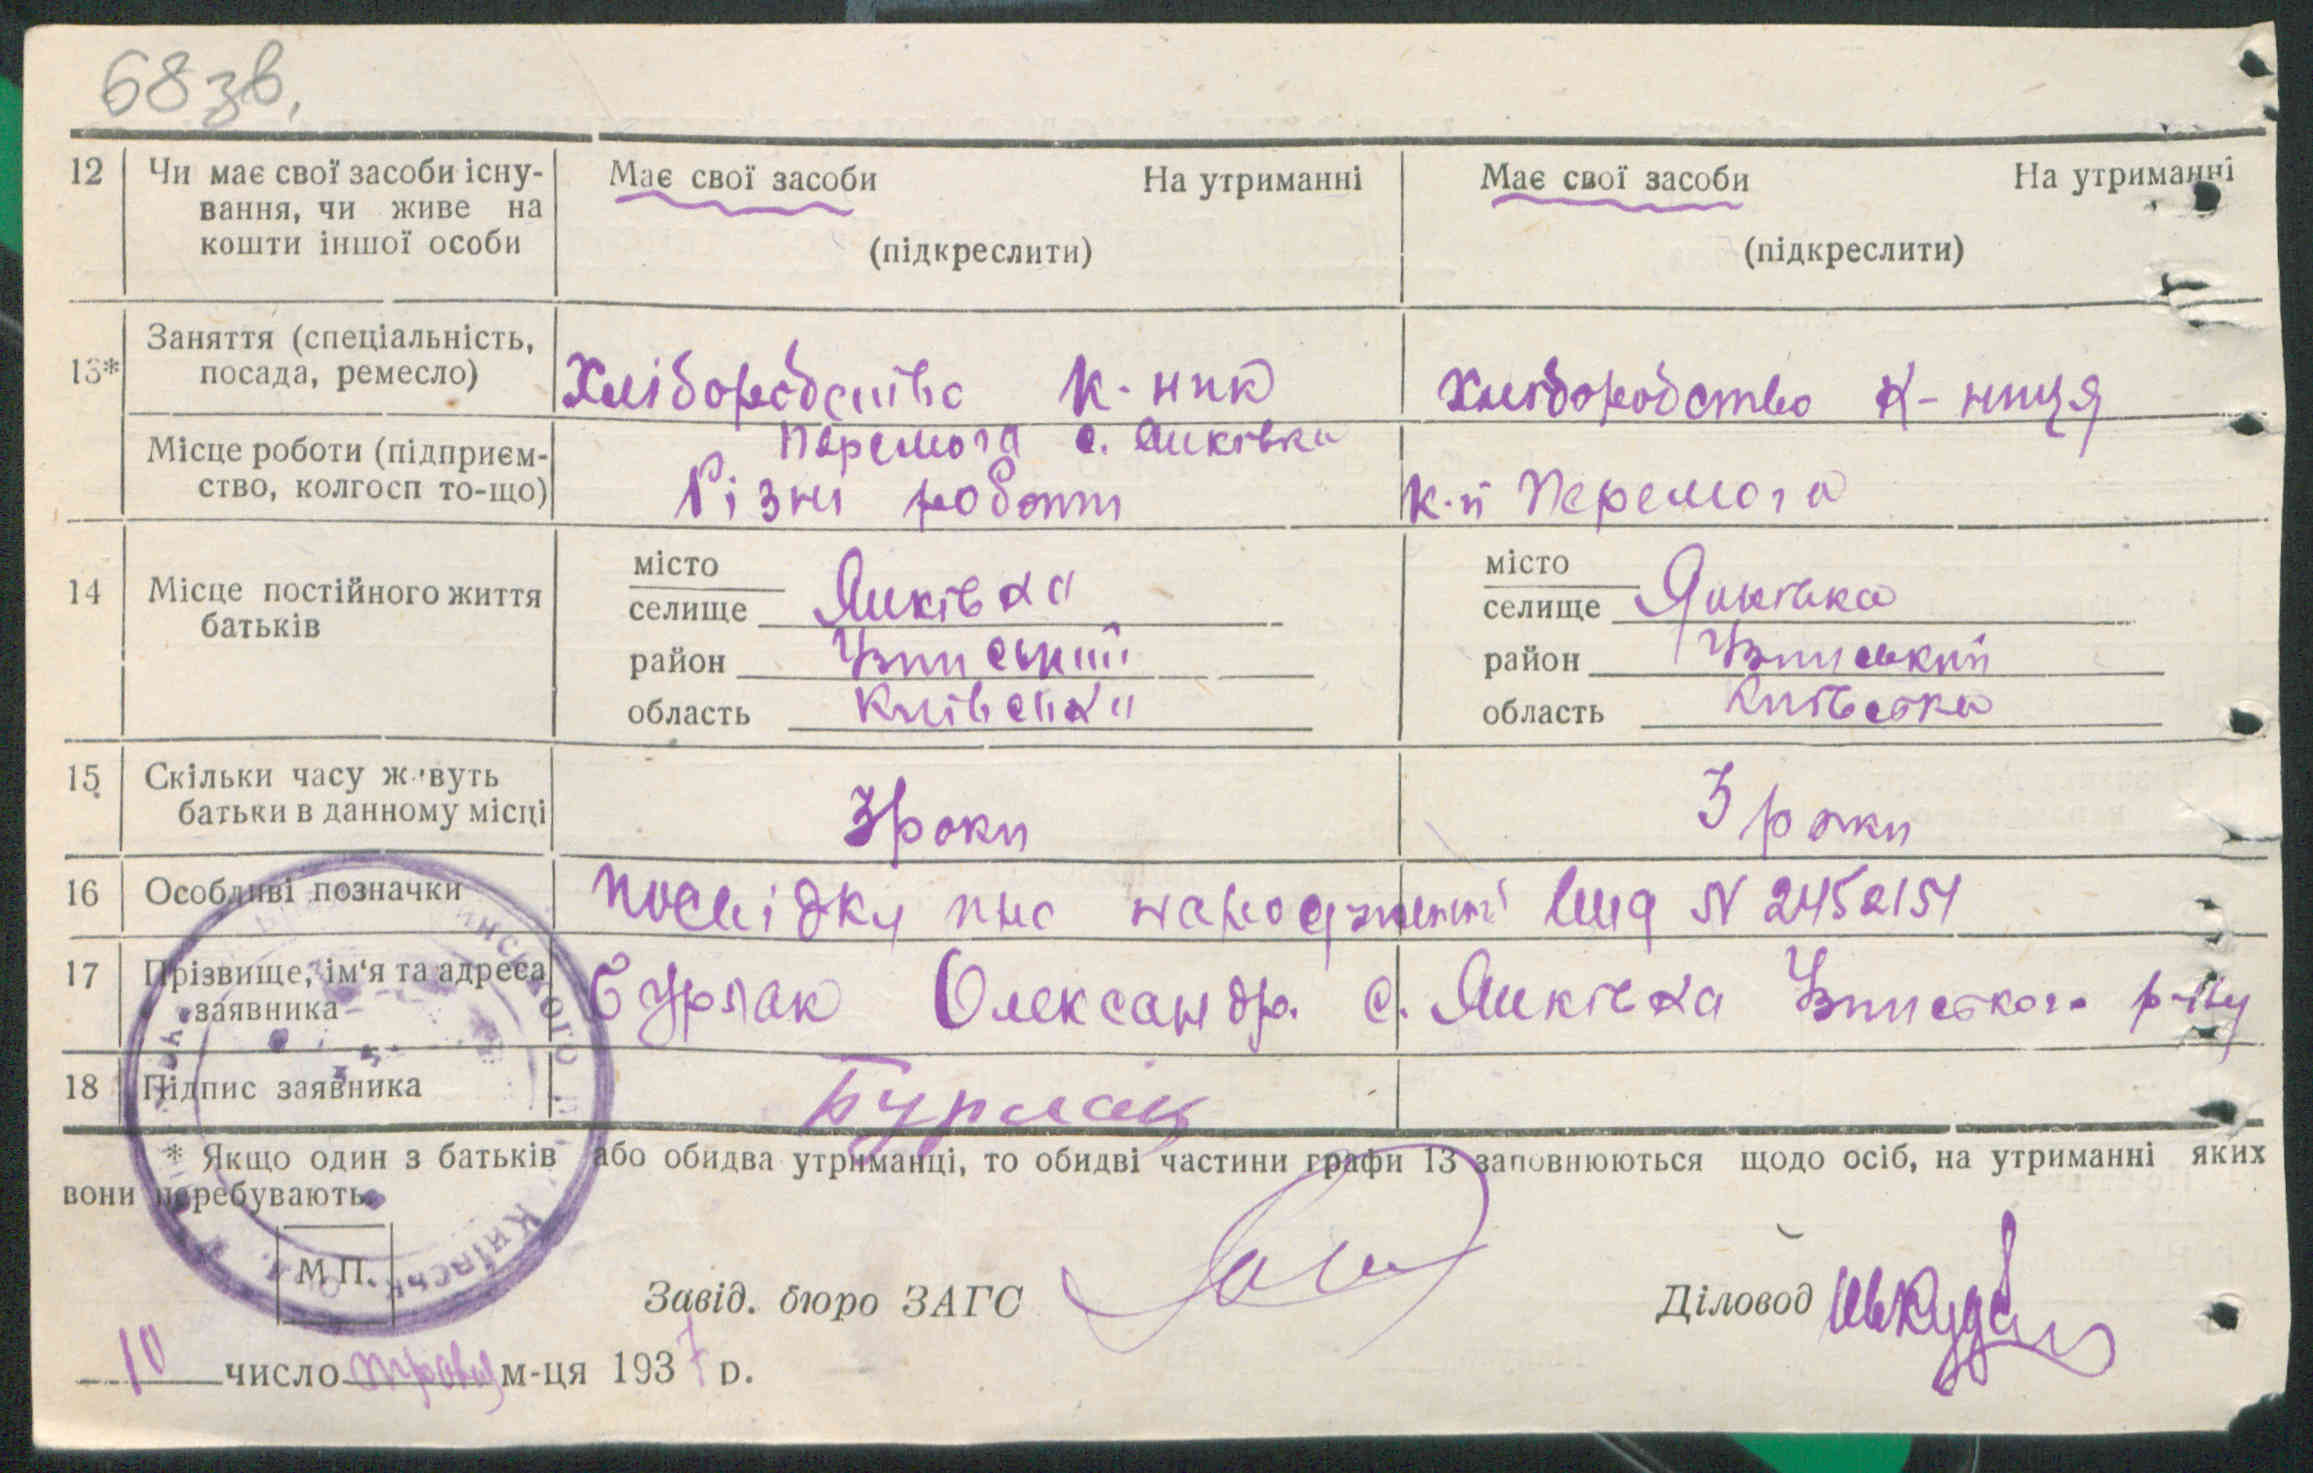 68 зв.
12 Чи має свої засоби існу- Має свої засоби На утриманні Має свої засоби На утриманні
вання, чи живе на
кошти іншої особи (підкреслити) (підкреслити)
13* Заняття (спеціальність,
посада, ремесло) Хліборобство К-ник Хліборобство К-ниця
Перемога с. Янківка
Місце роботи (підприєм-
ство, колгосп то-що) Різні роботи К-п Перемога
14 Місце постійного життя
батьків
місто
селище Янківка
район Узинський
область Київська
місто
селище Янківка
район Узинський
область Київська
15 Скільки часу живуть
батьки в данному місці 3 роки 3 роки
16 Особливі позначки Посвідку про народження N 2452151
17 Прізвище, ім'я та адреса
заявника Бурлак Олександр. с. Янківка Узинського р-ну
18 Підпис заявника Бурлак
* Якщо один з батьків або обидва утриманці, то обидві частини графи 13 заповнюються щодо осіб, на утриманні яких
вони перебувають.
М.П.
Завід. бюро ЗАГС Діловод
10 число травня м-ця 1937 р.